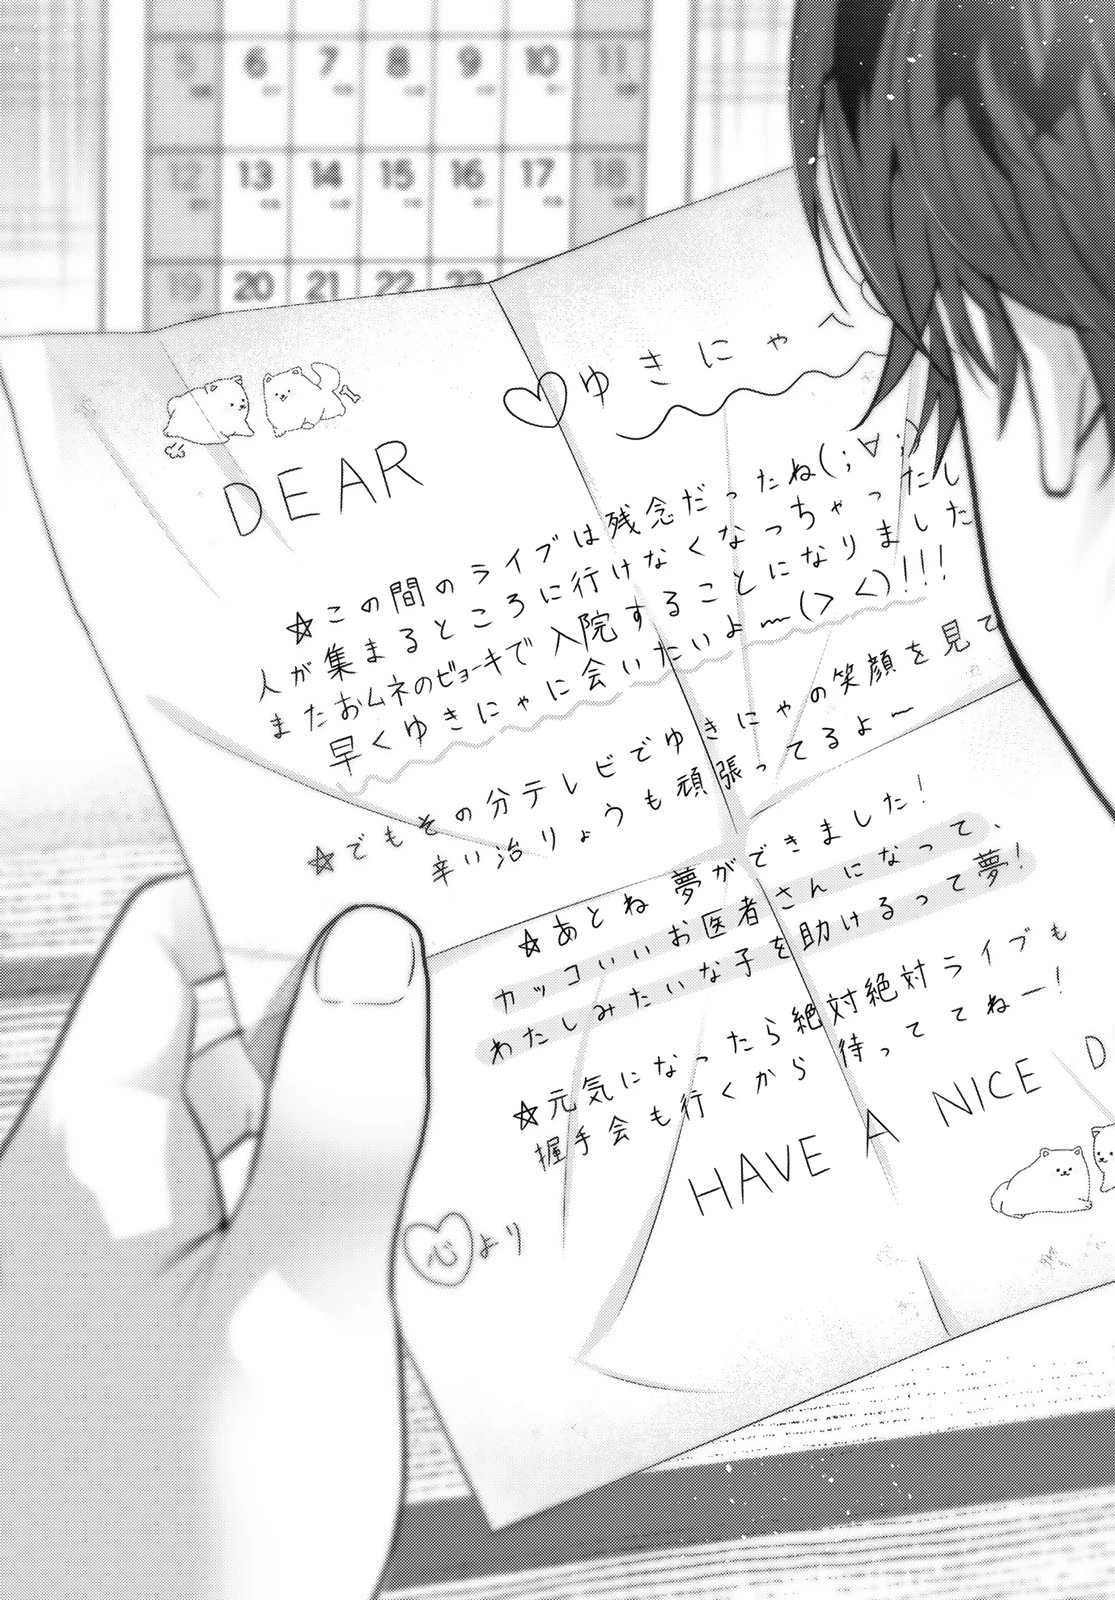 5 6 7 8 9 10 11
12 13 14 15 16 17 18
19 20 21 22 23
DEAR
♡ゆきにゃへ
☆この間のライブは残念だったね(;∀;)
人が集まるところに行けなくなっちゃったし
またおムネのビョーキで入院することになりました
早くゆきにゃに会いたいよ〜(><)!!!
☆でもその分テレビでゆきにゃの笑顔を見て
辛い治りょうも頑張ってるよ〜
☆あとね 夢ができました!
カッコいいお医者さんになって、
わたしみたいな子を助けるって夢!
☆元気になったら絶対絶対ライブも
握手会も行くから待っててねー!
HAVE A NICE D
心より